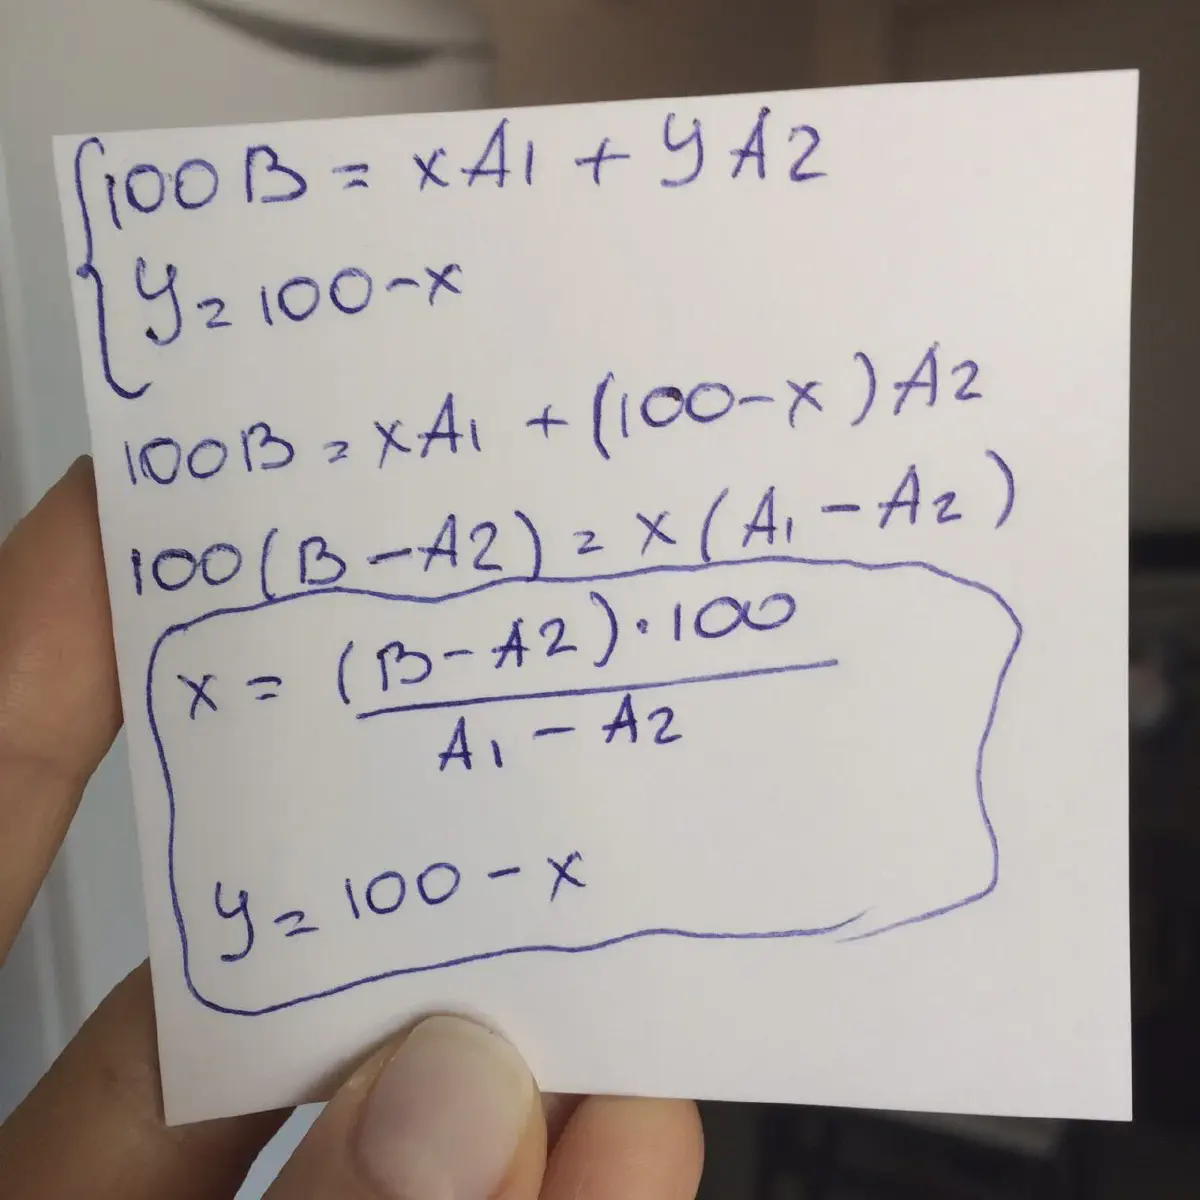 100B = xA1 + yA2
y = 100 - x
100B = xA1 + (100 - x)A2
100(B - A2) = x(A1 - A2)
x = (B - A2) · 100
A1 - A2
y = 100 - x